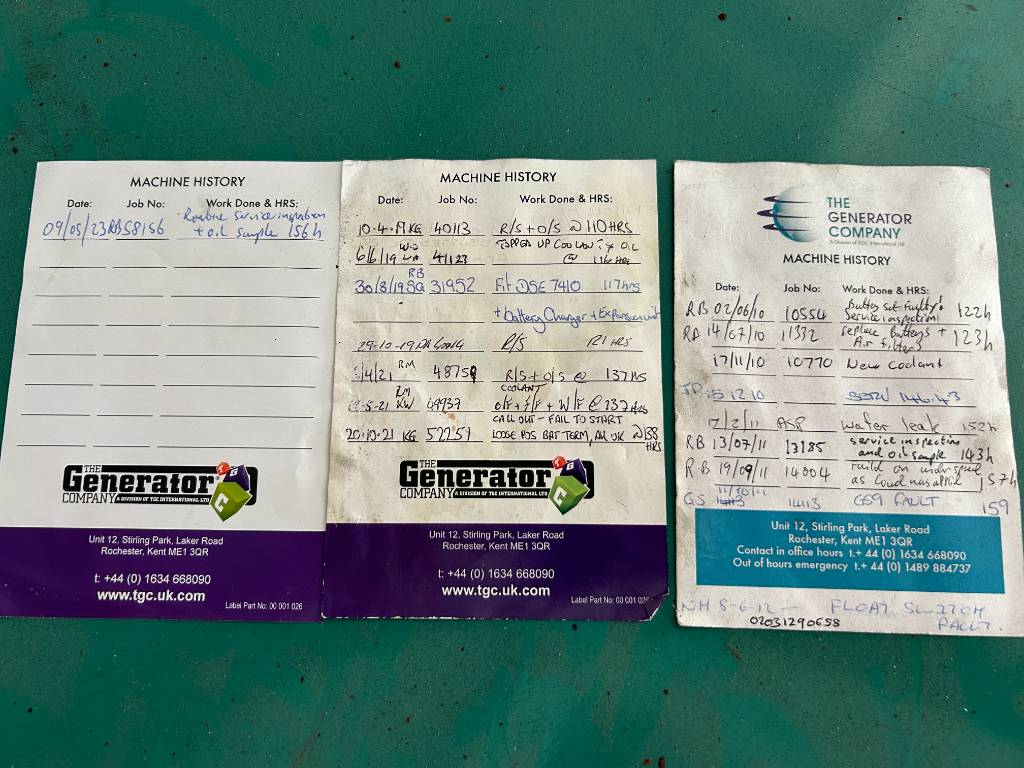 MACHINE HISTORY
Date: Job No: Work Done & HRS:
09/05/23 RB 58156 Routine Service inspection
+ oil sample 156h
THE
Generator
COMPANY A DIVISION OF TGC INTERNATIONAL LTD
Unit 12, Stirling Park, Laker Road
Rochester, Kent ME1 3QR
t: +44 (0) 1634 668090
www.tgc.uk.com
Label Part No: 00 001 026
MACHINE HISTORY
Date: Job No: Work Done & HRS:
10.4.19 KG 40113 R/S + O/S @ 110 HRS
6/6/19 41123 TOPPED UP COOLANT & OIL
@ 116 HRS
RB
30/8/19 SG 31952 Fit DSE 7410 117hrs
+ battery Charger + Expansion unit
29-10-19 R/S 121 HRS
/4/21 RM 48759 R/S + O/S @ 137 HRS
COOLANT
-5-21 KW 49937 O/F + F/F + W/F @ 137 HRS
CALL OUT - FAIL TO START
20.10.21 KG 52251 LOOSE POS BAT TERM, ALL OK @ 138
HRS
THE
Generator
COMPANY A DIVISION OF TGC INTERNATIONAL LTD
Unit 12, Stirling Park, Laker Road
Rochester, Kent ME1 3QR
t: +44 (0) 1634 668090
www.tgc.uk.com
Label Part No: 00 001 026
THE
GENERATOR
COMPANY
A Division of TGC International Ltd
MACHINE HISTORY
Date: Job No: Work Done & HRS:
RB 02/06/10 10554 Battery set faulty!
Service inspection! 122h
RB 14/07/10 11332 replace Batterys +
Air filters 123h
17/11/10 10770 New Coolant
JP 5 12 10 146.43
2/2/11 ASP Water leak 152h
RB 13/07/11 13185 service inspection
and oil sample 143h
RB 19/09/11 14004 Faild on underspeed
as Load was applid 157h
11/10/11
GS 14113 14113 GS9 FAULT 159
Unit 12, Stirling Park, Laker Road
Rochester, Kent ME1 3QR
Contact in office hours t.+ 44 (0) 1634 668090
Out of hours emergency t.+ 44 (0) 1489 884737
NH 8-6-12 - FLOAT SWITCH
02031290658 FAULT.